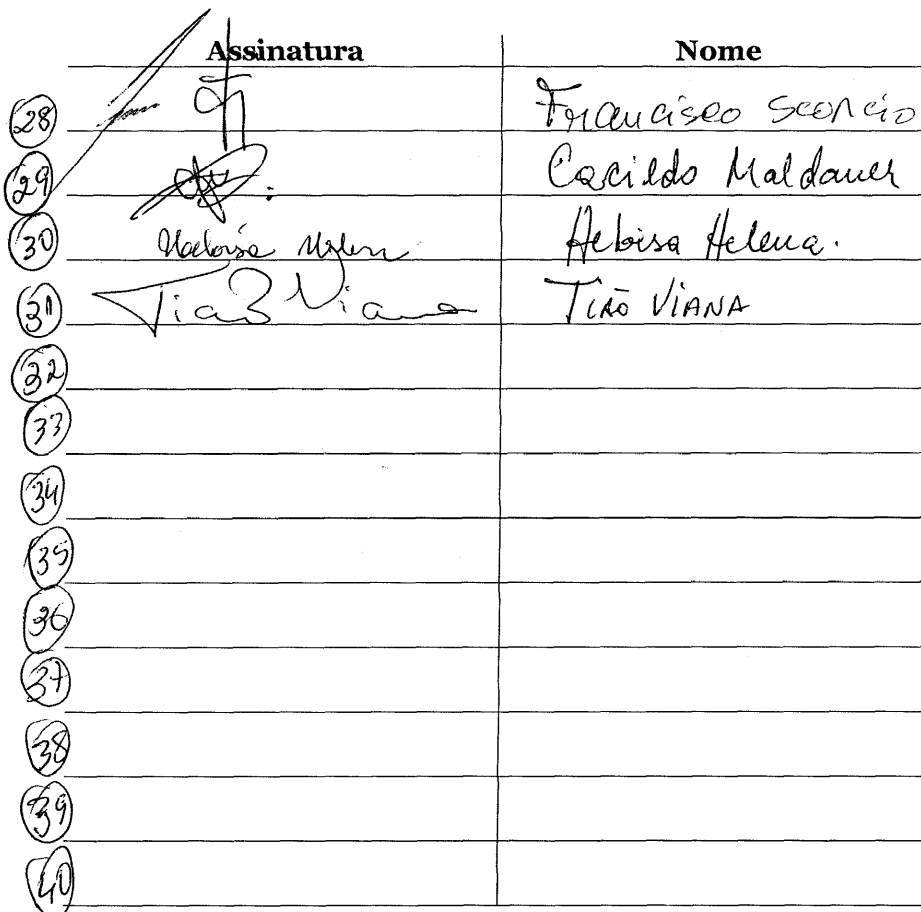 Assinatura Nome
28 Francisco Scorcio
29 Cacildo Maldaner
30 Heloisa Helena Heloisa Helena.
31 Tião Viana Tião Viana
32
33
34
35
36
37
38
39
40